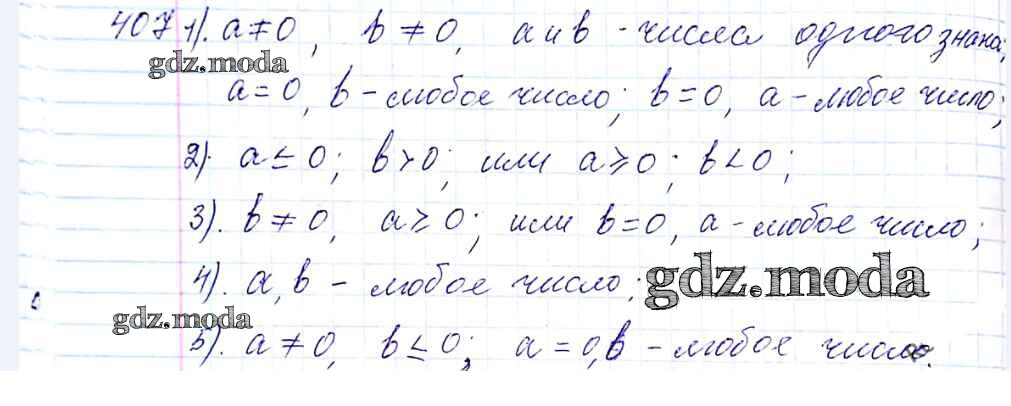 407 1). a ≠ 0, b ≠ 0, а и b - числа одного знака;
gdz.moda
a = 0, b - любое число; b = 0, a - любое число;
2). a ≤ 0; b > 0; или a ≥ 0; b < 0;
3). b ≠ 0, a ≥ 0; или b = 0, a - любое число;
4). a, b - любое число;
gdz.moda
gdz.moda
5). a ≠ 0, b ≤ 0; a = 0, b - любое число.